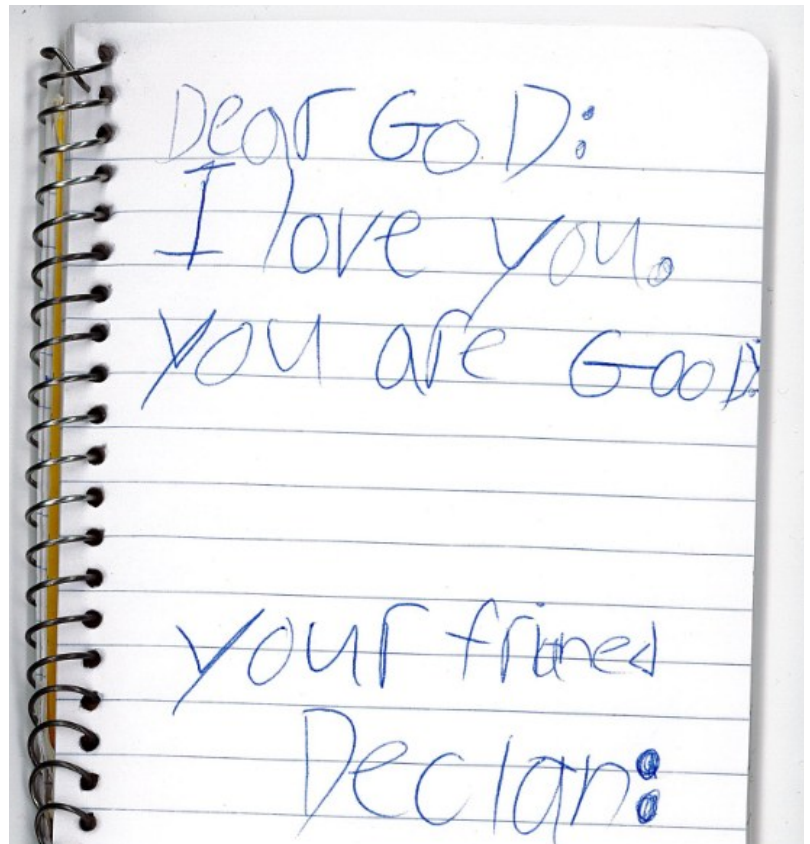 Dear GOD:
I love you.
you are GooD:
your frined
Declan: